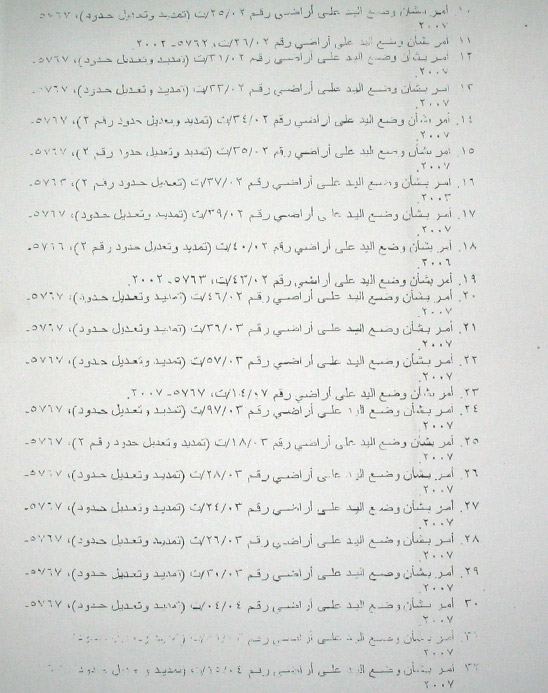 ١٠. أمر بشأن وضع اليد على أراضي رقم ٢٥/٠٢/ت (تمديد وتعديل حدود)، ٥٧٦٧-
٢٠٠٧.
١١. أمر بشأن وضع اليد على أراضي رقم ٢٦/٠٢/ت، ٥٧٦٢- ٢٠٠٢.
١٢. أمر بشأن وضع اليد على أراضي رقم ٣١/٠٢/ت (تمديد وتعديل حدود)، ٥٧٦٧-
٢٠٠٧.
١٣. أمر بشأن وضع اليد على أراضي رقم ٣٣/٠٢/ت (تمديد وتعديل حدود)، ٥٧٦٧-
٢٠٠٧.
١٤. أمر بشأن وضع اليد على أراضي رقم ٣٤/٠٢/ت (تمديد وتعديل حدود رقم ٢)، ٥٧٦٧-
٢٠٠٧.
١٥. أمر بشأن وضع اليد على أراضي رقم ٣٥/٠٢/ت (تمديد وتعديل حدود رقم ٢)، ٥٧٦٧-
٢٠٠٧.
١٦. أمر بشأن وضع اليد على أراضي رقم ٣٧/٠٢/ت (تعديل حدود رقم ٢)، ٥٧٦٣-
٢٠٠٣.
١٧. أمر بشأن وضع اليد على أراضي رقم ٣٩/٠٢/ت (تمديد وتعديل حدود)، ٥٧٦٧-
٢٠٠٧.
١٨. أمر بشأن وضع اليد على أراضي رقم ٤٠/٠٢/ت (تمديد وتعديل حدود رقم ٢)، ٥٧٦٦-
٢٠٠٦.
١٩. أمر بشأن وضع اليد على أراضي رقم ٤٣/٠٢/ت، ٥٧٦٣- ٢٠٠٢.
٢٠. أمر بشأن وضع اليد على أراضي رقم ٤٦/٠٢/ت (تمديد وتعديل حدود)، ٥٧٦٧-
٢٠٠٧.
٢١. أمر بشأن وضع اليد على أراضي رقم ٣٦/٠٣/ت (تمديد وتعديل حدود)، ٥٧٦٧-
٢٠٠٧.
٢٢. أمر بشأن وضع اليد على أراضي رقم ٥٧/٠٣/ت (تمديد وتعديل حدود)، ٥٧٦٧-
٢٠٠٧.
٢٣. أمر بشأن وضع اليد على أراضي رقم ١٤/٠٧/ت، ٥٧٦٧- ٢٠٠٧.
٢٤. أمر بشأن وضع اليد على أراضي رقم ٩٧/٠٣/ت (تمديد وتعديل حدود)، ٥٧٦٧-
٢٠٠٧.
٢٥. أمر بشأن وضع اليد على أراضي رقم ١٨/٠٣/ت (تمديد وتعديل حدود رقم ٢)، ٥٧٦٧-
٢٠٠٧.
٢٦. أمر بشأن وضع اليد على أراضي رقم ٢٨/٠٣/ت (تمديد وتعديل حدود)، ٥٧٦٧-
٢٠٠٧.
٢٧. أمر بشأن وضع اليد على أراضي رقم ٢٤/٠٣/ت (تمديد وتعديل حدود)، ٥٧٦٧-
٢٠٠٧.
٢٨. أمر بشأن وضع اليد على أراضي رقم ٢٦/٠٣/ت (تمديد وتعديل حدود)، ٥٧٦٧-
٢٠٠٧.
٢٩. أمر بشأن وضع اليد على أراضي رقم ٣٠/٠٣/ت (تمديد وتعديل حدود)، ٥٧٦٧-
٢٠٠٧.
٣٠. أمر بشأن وضع اليد على أراضي رقم ٠٤/٠٤/ت (تمديد وتعديل حدود)، ٥٧٦٧-
٢٠٠٧.
٣١. أمر بشأن وضع اليد على أراضي رقم
٢٠٠٧.
٣٢. أمر بشأن وضع اليد على أراضي رقم ١٥/٠٤/ت (تمديد وتعديل حدود)، ٥٧٦٧-
٢٠٠٧